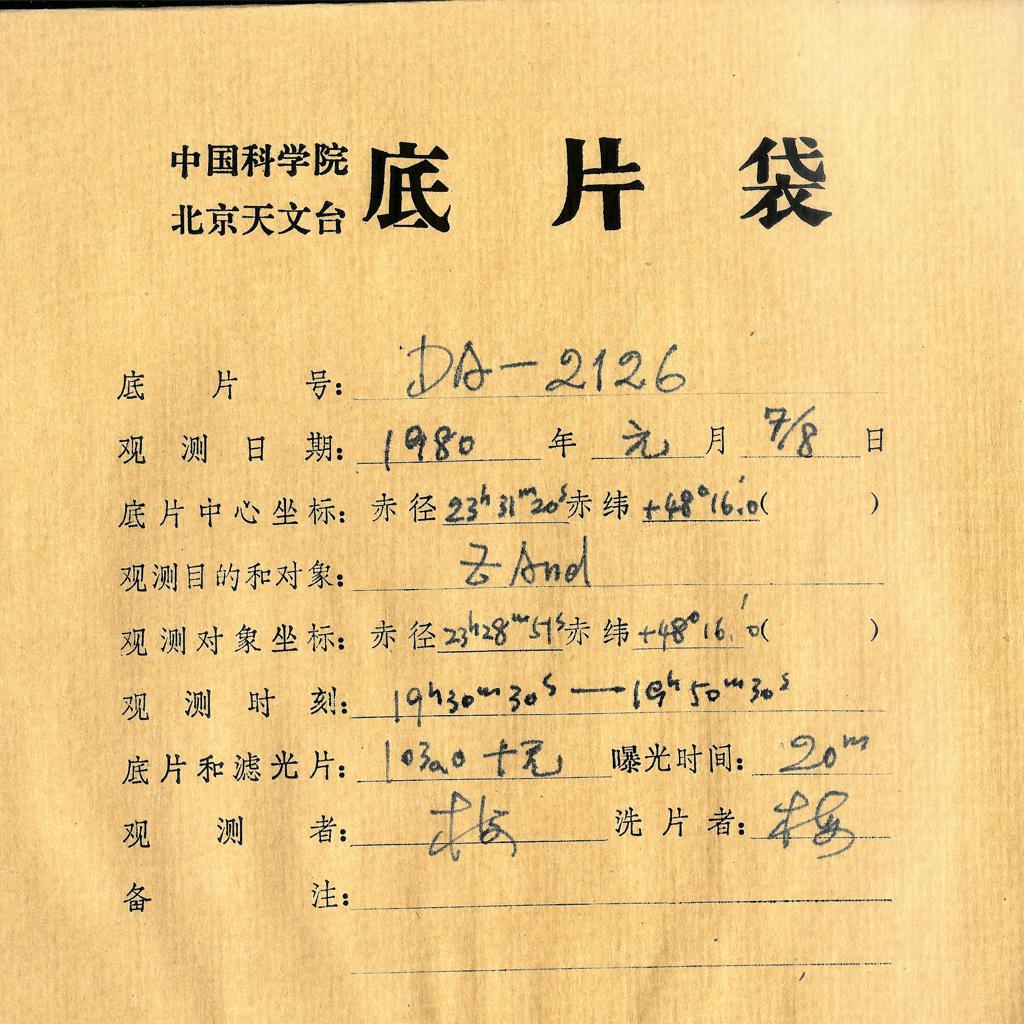 中国科学院
北京天文台
底片袋
底片号: DA-2126
观测日期: 1980 年 元 月 7/8 日
底片中心坐标: 赤径 23ʰ31ᵐ20ˢ 赤纬 +48°16′.0 ( )
观测目的和对象: Z And
观测对象坐标: 赤径 23ʰ28ᵐ51ˢ 赤纬 +48°16′.0 ( )
观测时刻: 19ʰ30ᵐ30ˢ — 19ʰ50ᵐ30ˢ
底片和滤光片: 103aO+无 曝光时间: 20ᵐ
观测者: 梅 洗片者: 梅
备注: